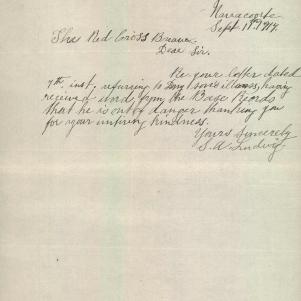 Navacoorle
Sept 19th 1917.
The Red Cross Bureau.
Dear Sir.
Re your letter dated
7th inst, refurging to my son's illness, having
received word from the Base Records
that he is out of danger thanking you
for your untiring kindness.
Yours Sincerely
S. A. Ludwig